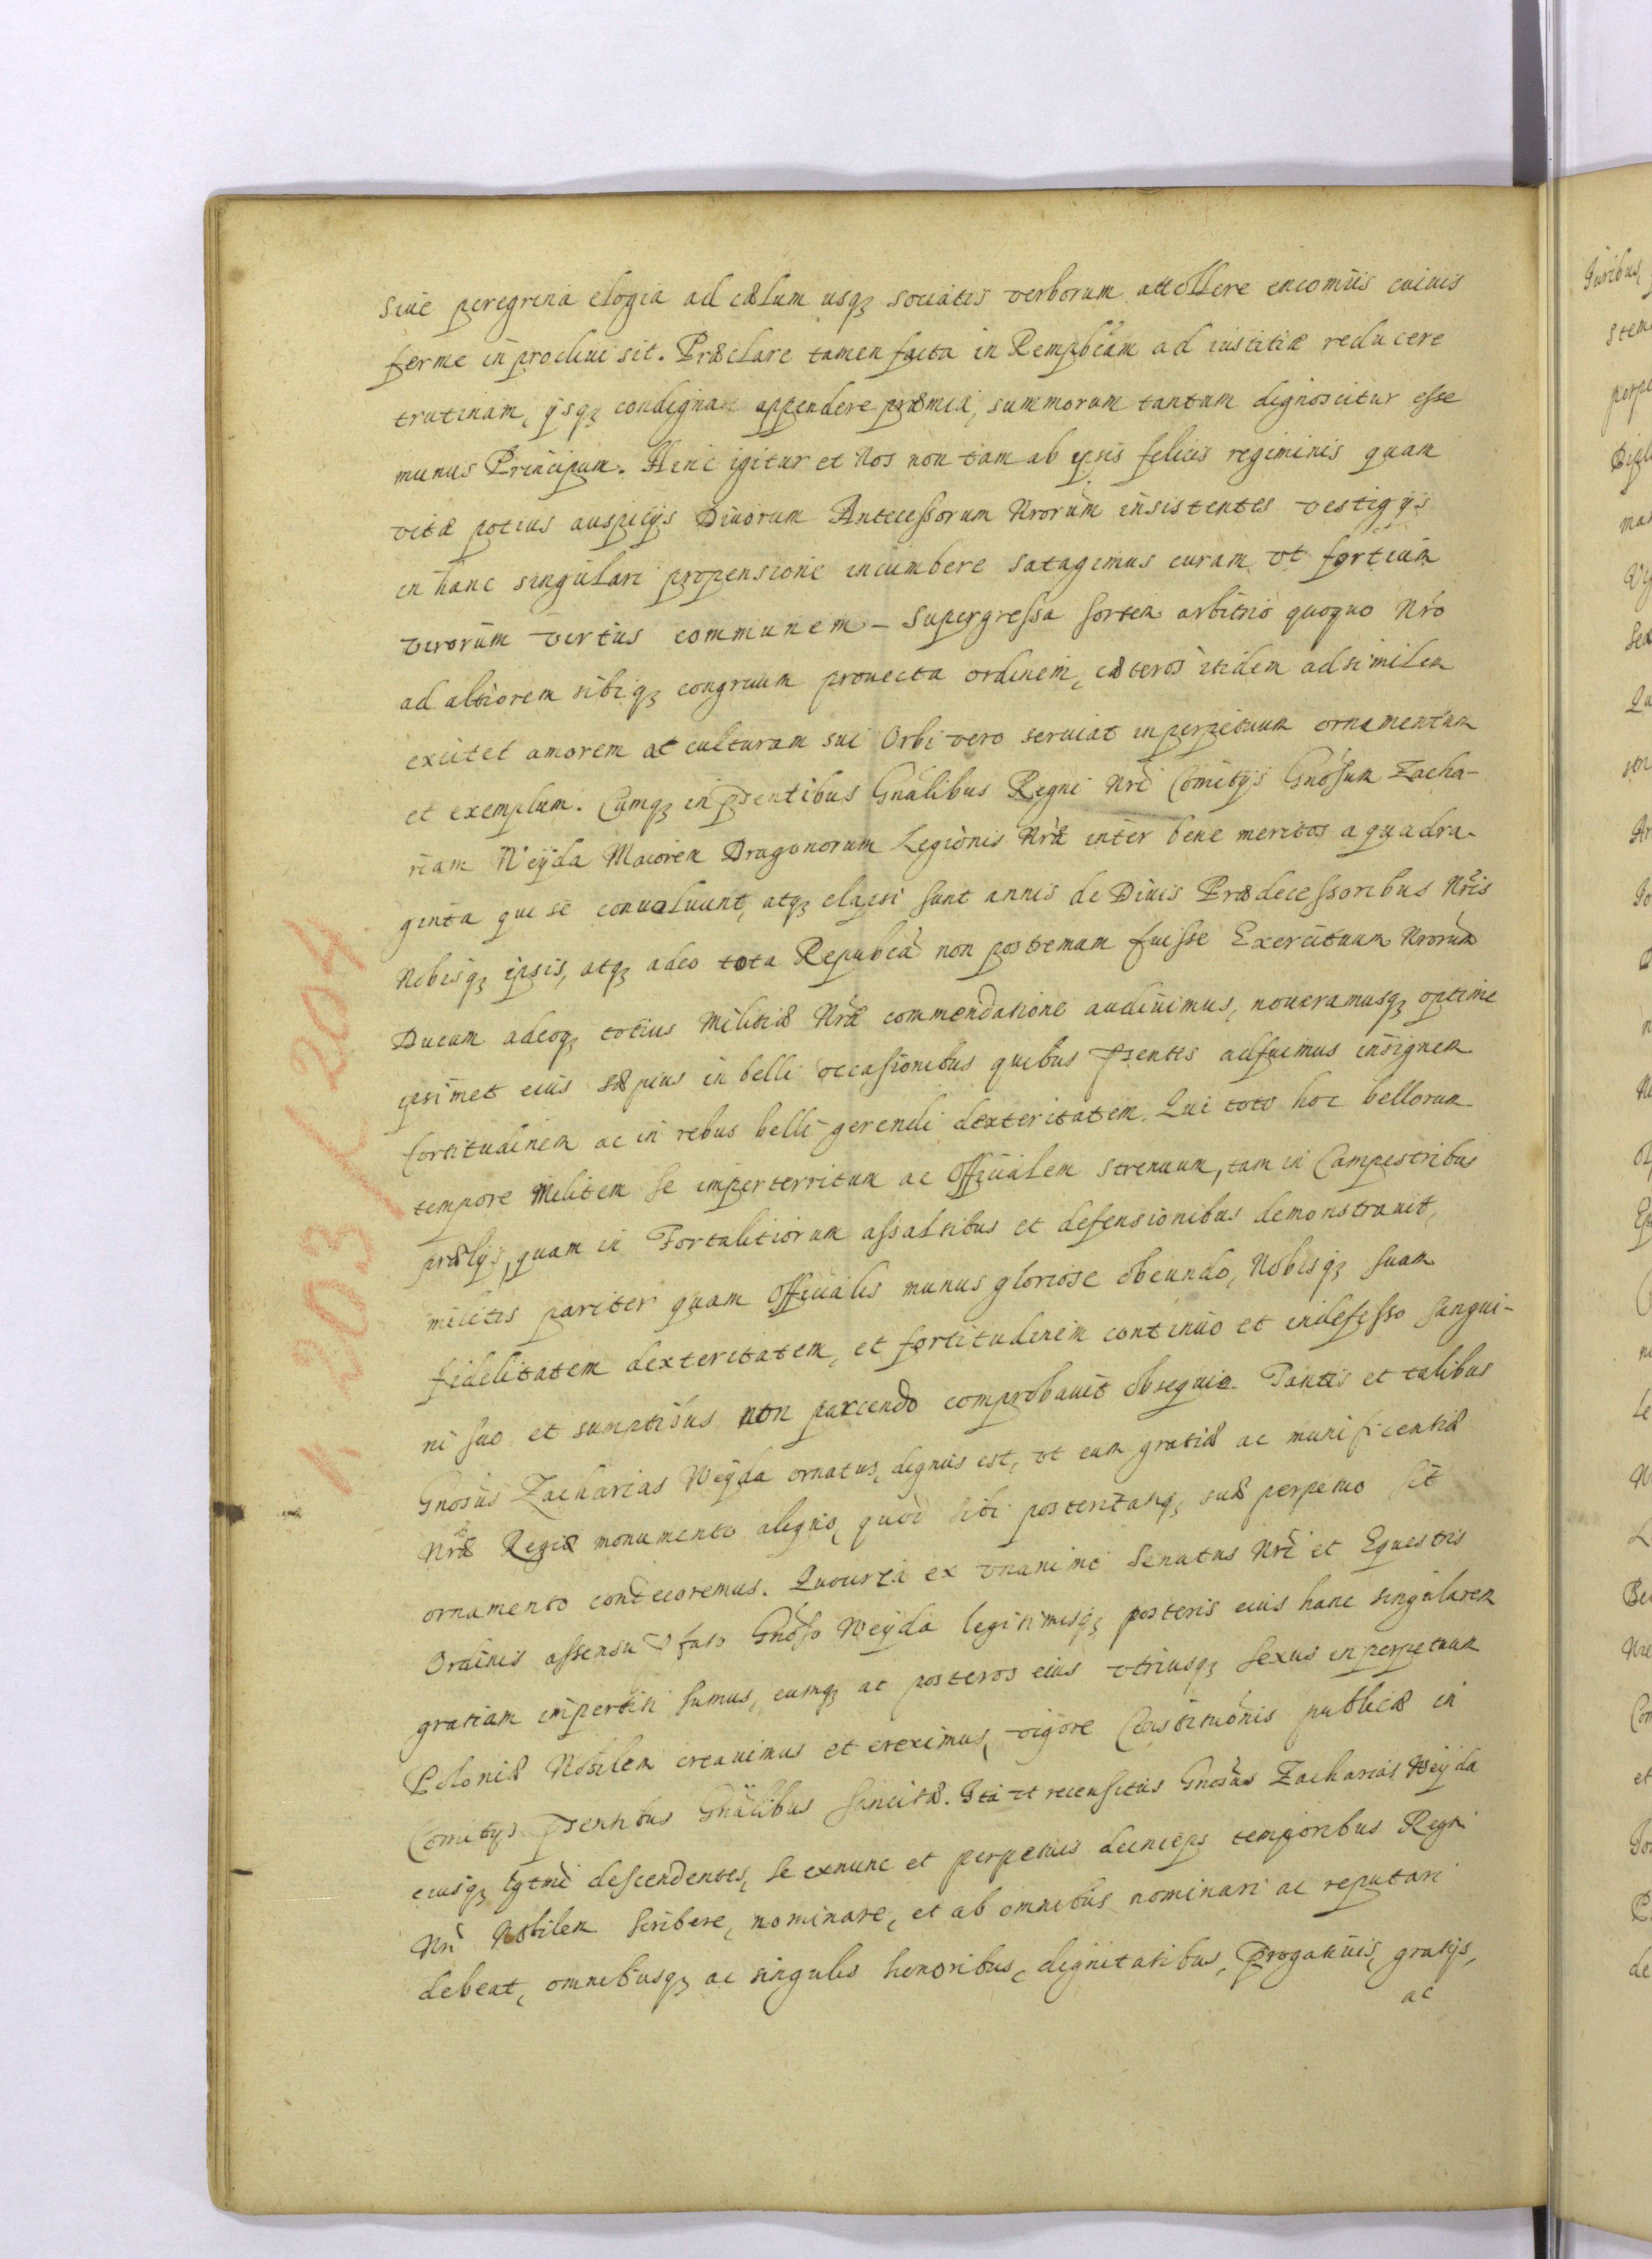 siue peregrina elogia ad cælum usq sociatis verborum attollere encomiis cuiuis
ferme in procliui sit. Præclare tamen facta in Rempbcam ad iustitiæ reducere
trutinam, ijsq condigna appendere præmia, summorum tantum dignoscitur esse
munus Principum. Hinc igitur et Nos non tam ab ipsis felicis regiminis quam
vitæ potius auspicijs Diuorum Antecessorum Nrorum insistentes vestigijs
in hanc singulari propensione incumbere satagimus curam vt fortium
virorum virtus communem supergressa sortem arbitrio quoquo Nro
ad altiorem sibiq congruum prouecta ordinem, cæteros itidem ad similem
excitet amorem at culturam sui Orbi vero seruiat in perpetuum ornamentum
et exemplum. Cumq in pntibus Gnalibus Regni Nri Comitijs Gnosum Zacha-
riam Weÿda Maiorem Dragonorum Legionis Nræ inter bene meritos a quadra-
ginta qui se conuoluunt, atq elapsi sunt annis de Diuis Prædecessoribus Nris
Nobisq ipsis, atq adeo tota Repubca non postremam fuisse Exercituum Nrorum
Ducum adeoq totius Militiæ Nræ commendatione audiuimus, noueramusq optime
ipsimet eius sæpius in belli occasionibus quibus pntes adfuimus insignem
fortitudinem ac in rebus belli gerendi dexteritatem. Qui toto hoc bellorum
tempore Militem se imperterritum ac Officialem strenuum, tam in Campestribus
prælijs, quam in Fortalitiorum assaltibus et defensionibus demonstrauit,
militis pariter quam Officialis munus gloriose obeundo, Nobisq suam
fidelitatem dexteritatem, et fortitudinem continuo et indefesso sangui-
ni suo et sumptibus non parcendo comprobauit obsequio. Tantis et talibus
Gnosus Zacharias Weÿda ornatus, dignus est, vt eum gratiæ ac munificentiæ
Nræ Regiæ monumento aliquo, quod sibi posteritatiq suæ perpetuo sit
ornamento condecoremus. Quocirca ex vnanimi Senatus Nri et Equestris
Ordinis assensu pfato Gnoso Weÿda legitimisq posteris eius hanc singularem
gratiam impertiti sumus, eumq ac posteros eius vtriusq sexus in perpetuum
Poloniæ Nobilem creauimus et ereximus, vigore Constitutionis publicæ in
Comitijs pntibus Gnalibus sancitæ. Ita vt recensitus Gnosus Zacharias Weÿda
eiusq lgtmi descendentes, se exnunc et perpetuis deinceps temporibus Regni
Nri Nobilem scribere, nominare, et ab omnibus nominari ac reputari
debeat, omnibusq ac singulis honoribus, dignitatibus, Prrogatiuis, gratijs,
ac
K 203/204